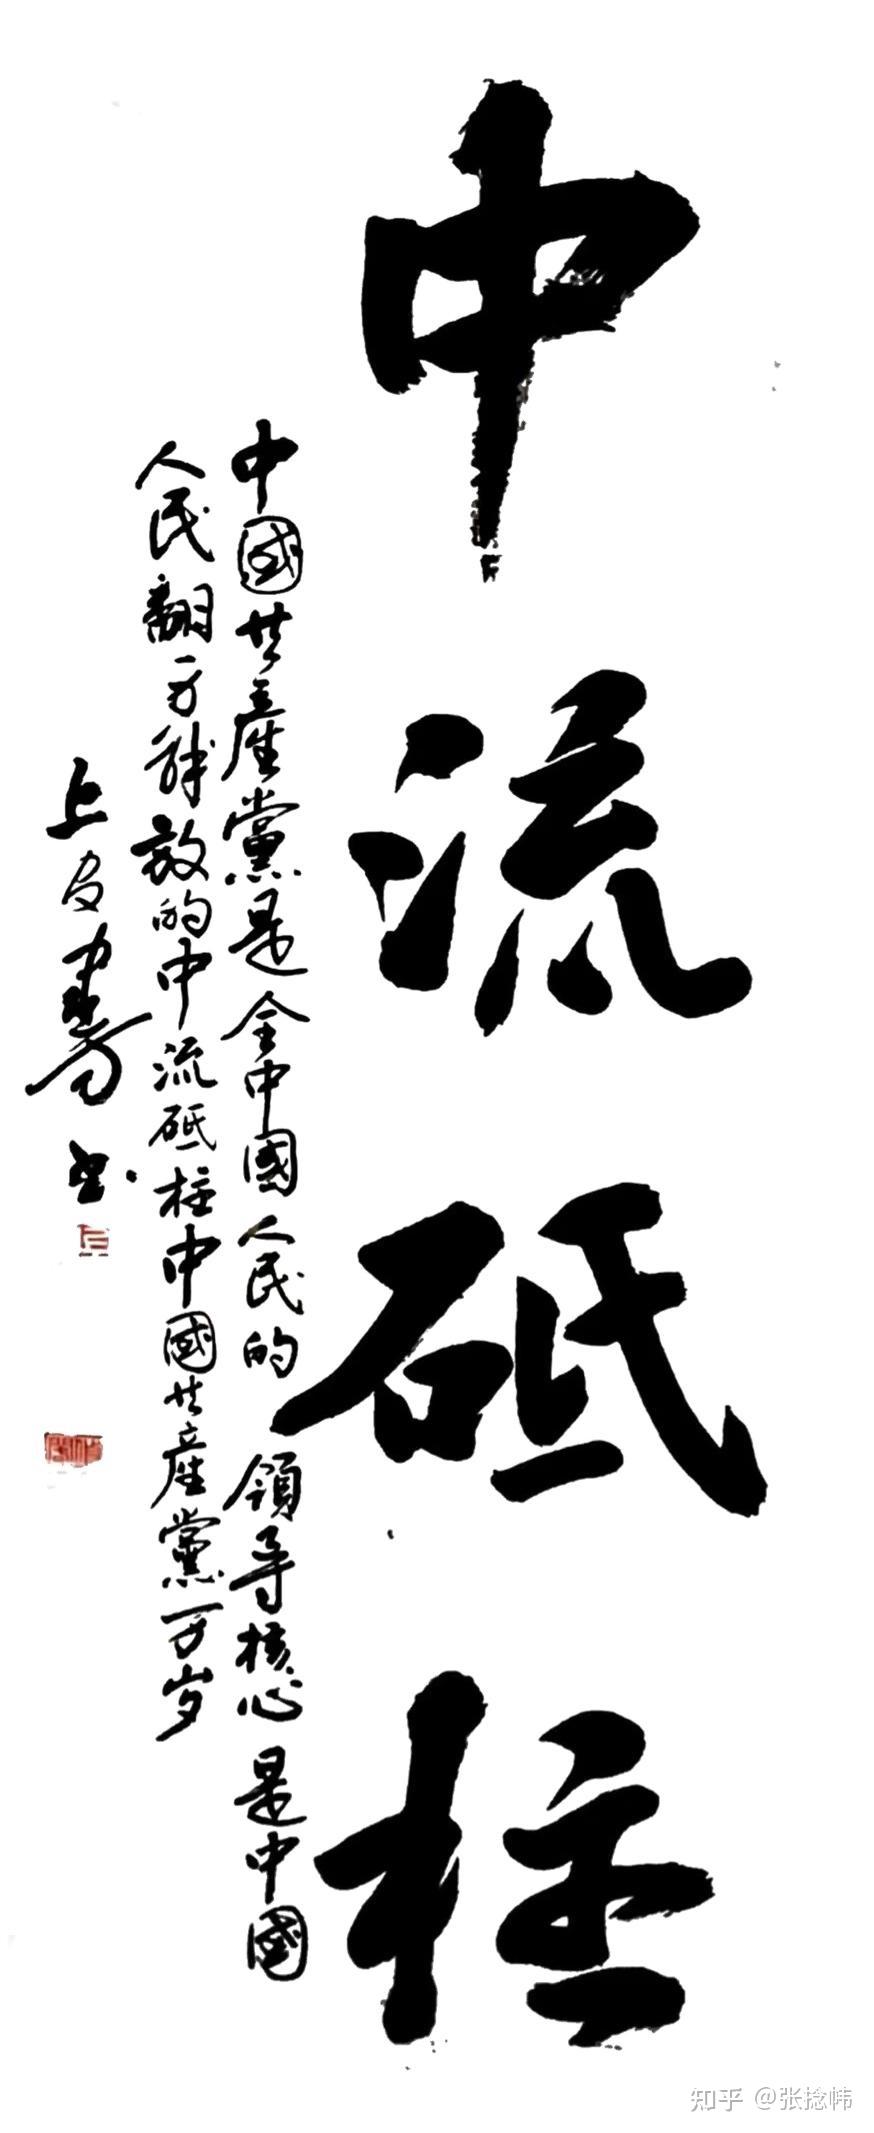 中流砥柱
中國共產黨是全中國人民的領导核心是中國
人民翻身解放的中流砥柱中國共產黨万岁
书
知乎 @张捻帏